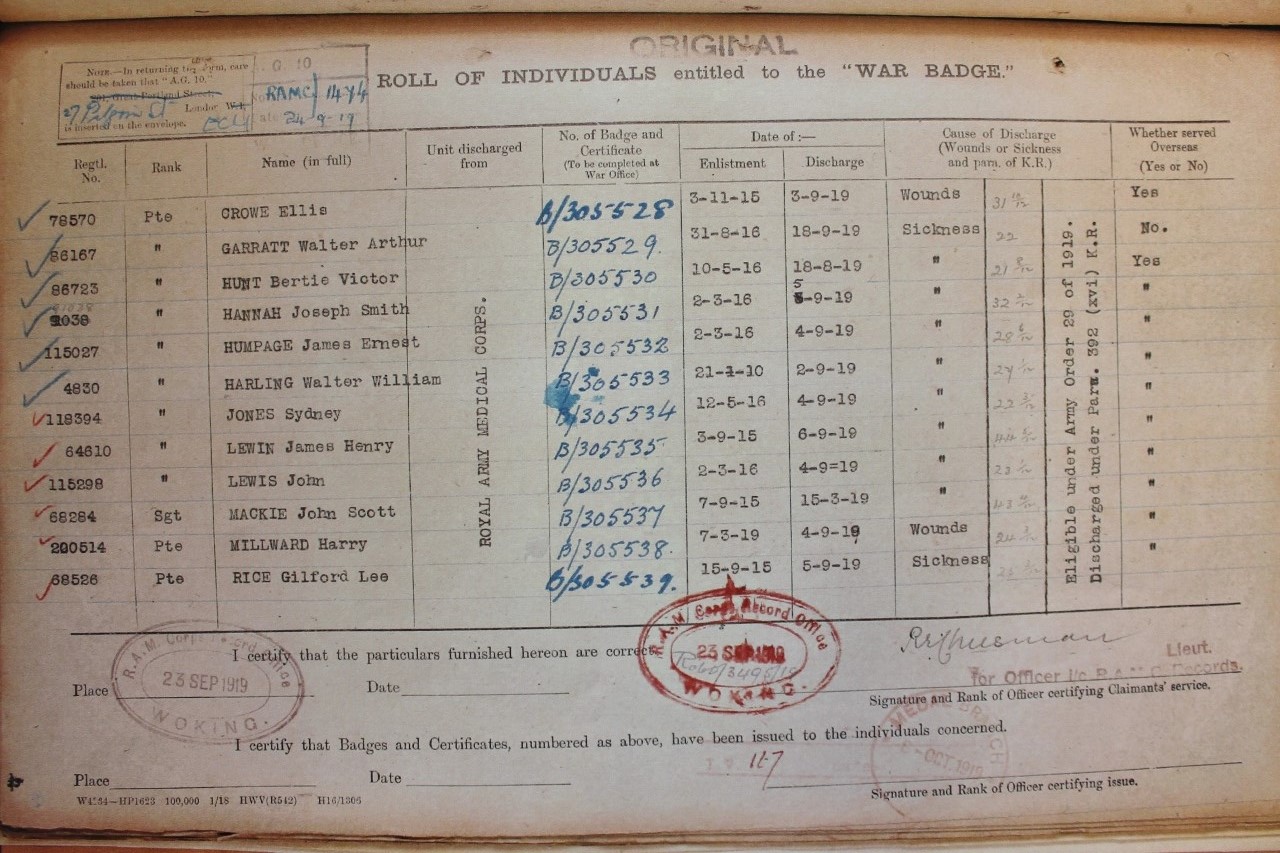 ORIGINAL
NOTE.—In returning this form, care
should be taken that "A.G. 10."
London W.1,
is inserted on the envelope.
27 Pilgrim St
EC4
A. G. 10
RAMC/1474
24-9-19
ROLL OF INDIVIDUALS entitled to the "WAR BADGE."
Regtl. No. Rank Name (in full) Unit discharged from No. of Badge and Certificate (To be completed at War Office) Date of:— Enlistment Discharge Cause of Discharge (Wounds or Sickness and para. of K.R.) Whether served Overseas (Yes or No)
78570 Pte CROWE Ellis B/305528 3-11-15 3-9-19 Wounds Yes
86167 " GARRATT Walter Arthur B/305529. 31-8-16 18-9-19 Sickness 22 No.
86723 " HUNT Bertie Victor B/305530 10-5-16 18-8-19 " Yes
2038 " HANNAH Joseph Smith B/305531 2-3-16 5-9-19 " "
115027 " HUMPAGE James Ernest B/305532 2-3-16 4-9-19 " "
4830 " HARLING Walter William B/305533 21-1-10 2-9-19 " "
118394 " JONES Sydney B/305534 12-5-16 4-9-19 " "
64610 " LEWIN James Henry B/305535 3-9-15 6-9-19 " "
115298 " LEWIS John B/305536 2-3-16 4-9=19 " "
68284 Sgt MACKIE John Scott B/305537 7-9-15 15-3-19 " "
200514 Pte MILLWARD Harry B/305538. 7-3-19 4-9-19 Wounds "
68526 Pte RICE Gilford Lee B/305539. 15-9-15 5-9-19 Sickness "
ROYAL ARMY MEDICAL CORPS.
Eligible under Army Order 29 of 1919.
Discharged under Para. 392 (xvi) K.R.
I certify that the particulars furnished hereon are correct.
R.A.M. Corps Record Office
23 SEP 1919
WOKING.
R.A.M. Corps Record Office
23 SEP 1919
WOKING.
Lieut.
for Officer i/c R.A.M.C. Records.
Place Date
Signature and Rank of Officer certifying Claimants' service.
I certify that Badges and Certificates, numbered as above, have been issued to the individuals concerned.
MEDAL BRANCH
OCT 1919
Place Date
Signature and Rank of Officer certifying issue.
HP1623 100,000 1/18 HWV(R542) H16/1306